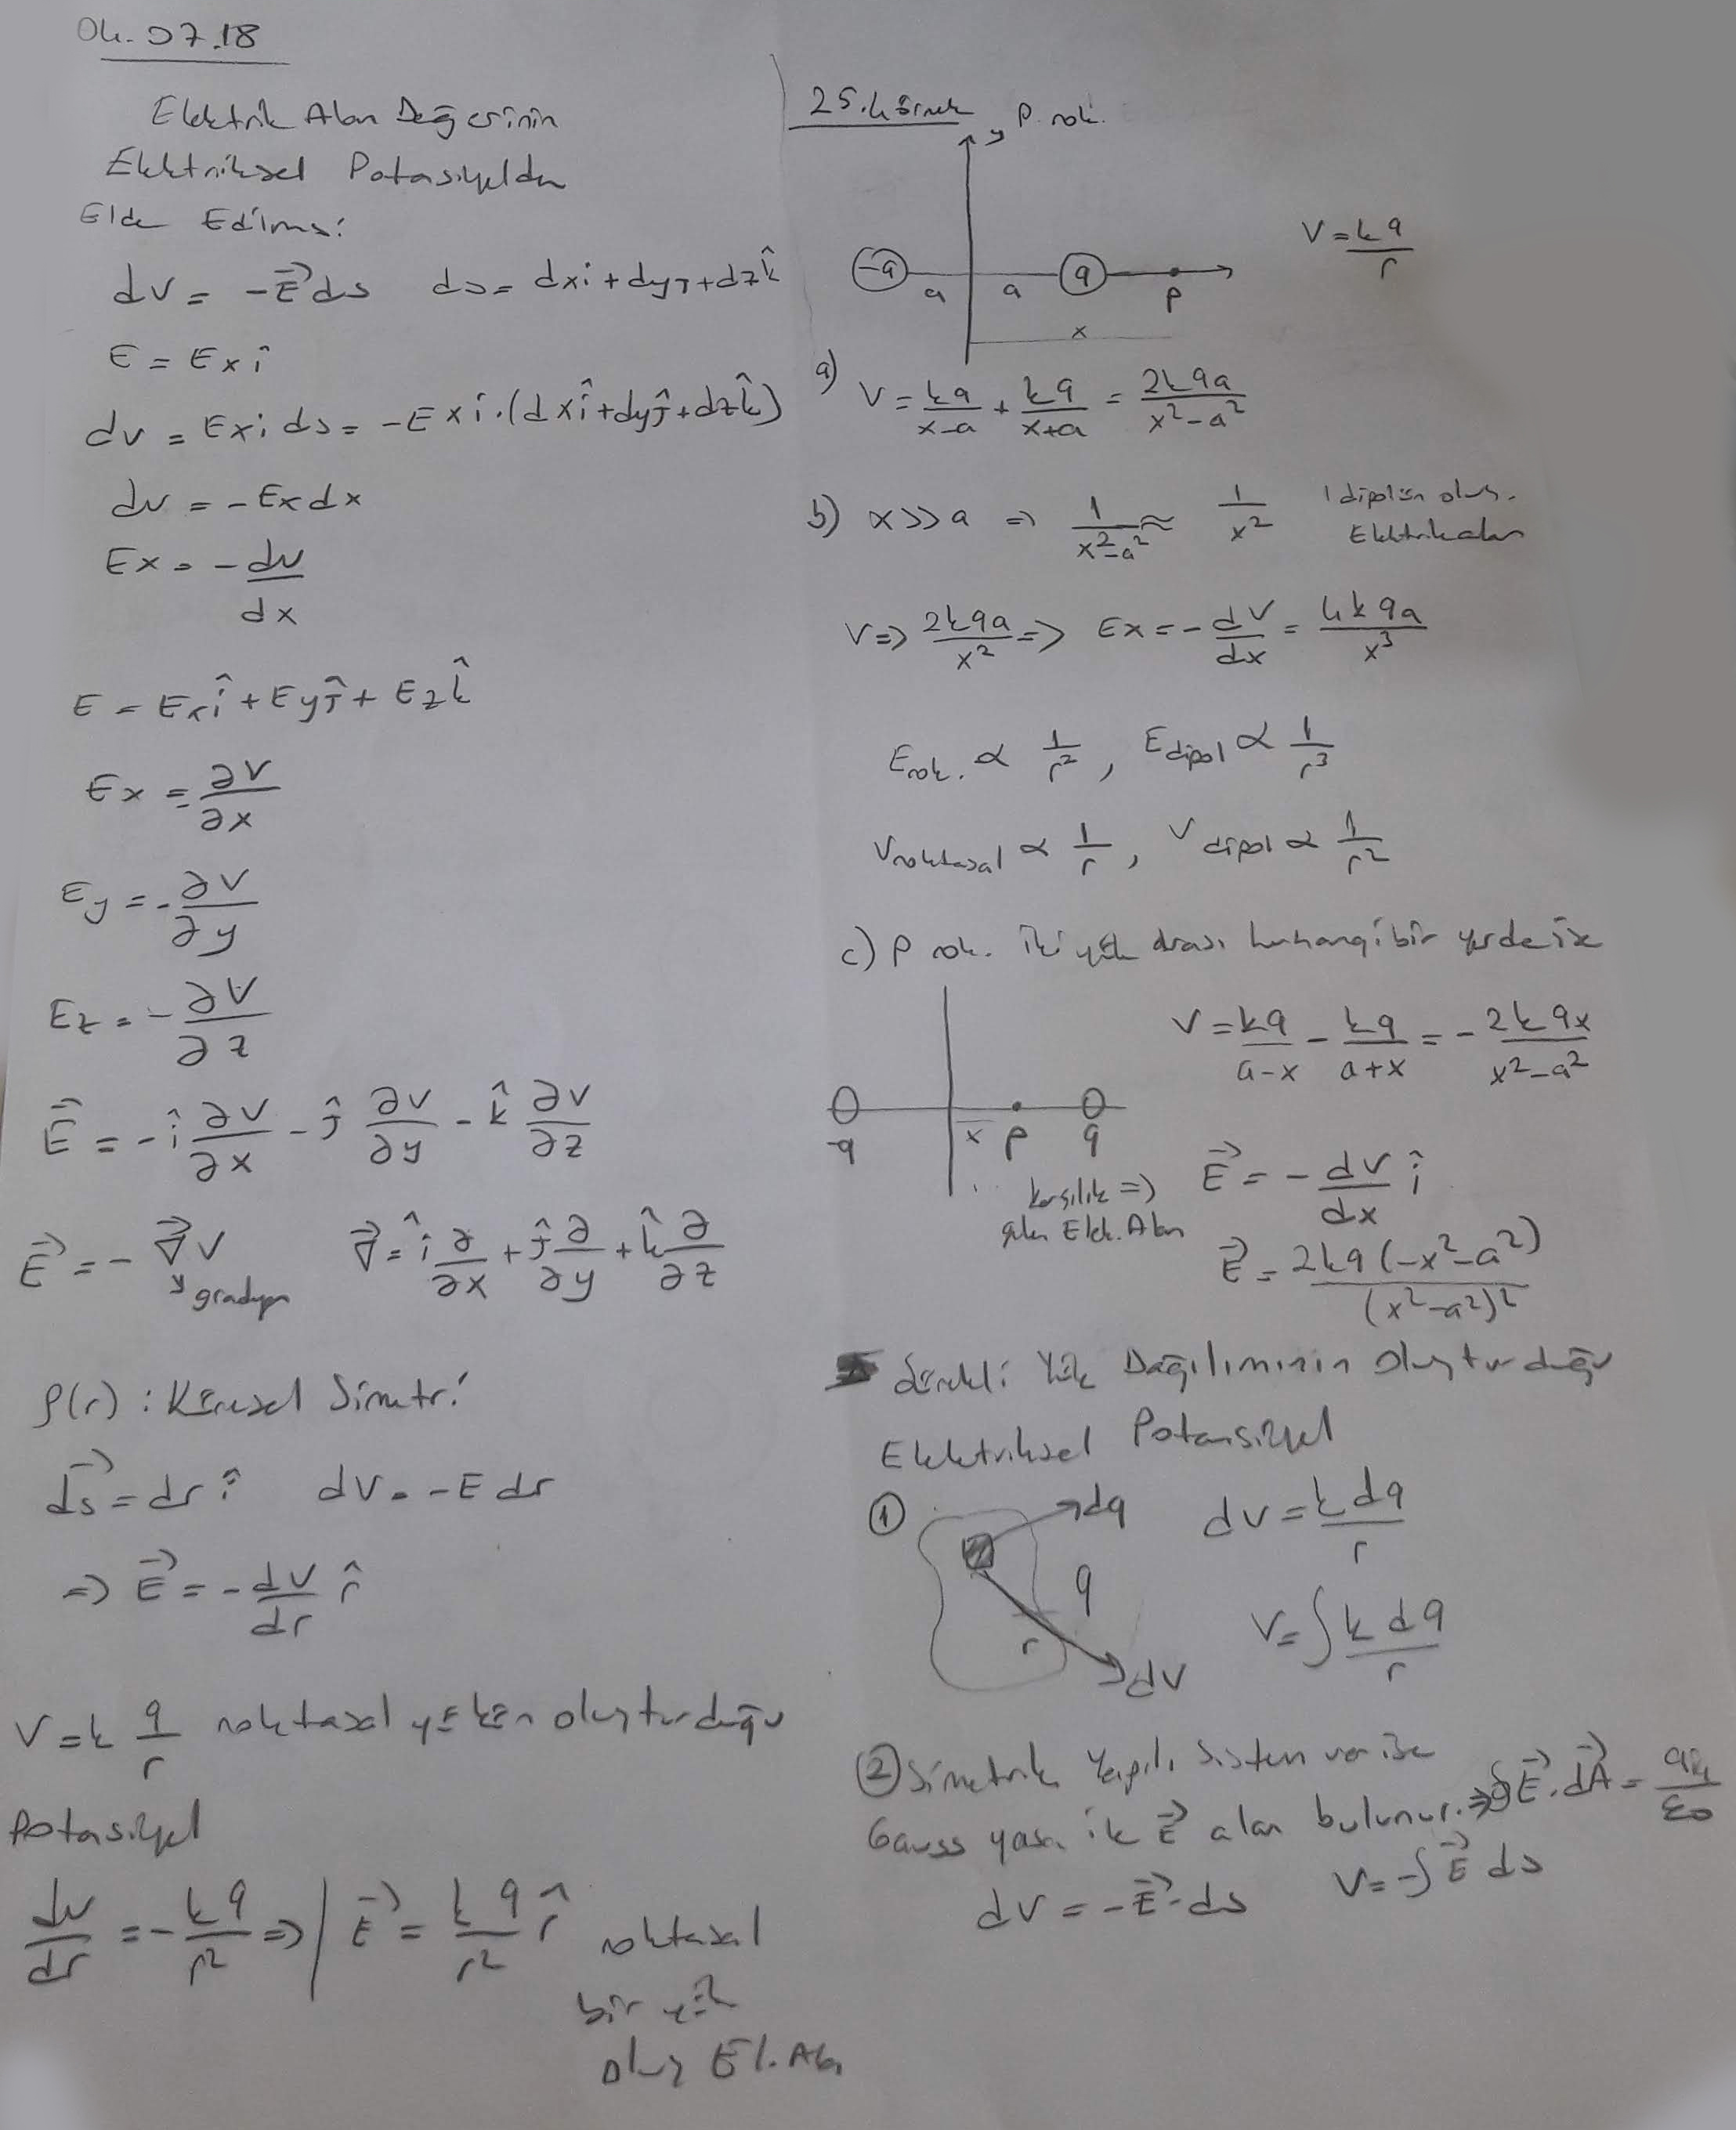 04.07.18
Elektrik Alan Değerinin
Elektriksel Potasiyelden
Elde Edilmesi:
dV = -E⃗ds ds = dxi + dyj + dzk̂
E = Exî
dv = Exi ds = -Exî.(dxî+dyĵ+dzk̂)
dv = -Exdx
Ex = -dv/dx
E = Exî + Eyĵ + Ezk̂
Ex = -∂V/∂x
Ey = -∂V/∂y
Ez = -∂V/∂z
E⃗ = -î ∂V/∂x - ĵ ∂V/∂y - k̂ ∂V/∂z
E⃗ = -∇⃗V ∇⃗ = î ∂/∂x + ĵ ∂/∂y + k̂ ∂/∂z
gradyen
ρ(r) : Küresel Simetri
ds⃗ = dr r̂ dV = -E dr
=> E⃗ = -dV/dr r̂
V = k q/r noktasal yükün oluşturduğu
Potasiyel
dv/dr = -kq/r² => | E⃗ = kq/r² r̂ noktasal
bir yük
oluş El. Alan
25.4 örnek
y P. nok.
-q a a q P
x
V = kq/r
a) V = kq/x-a + kq/x+a = 2kqa/x²-a²
b) x>>a => 1/x²-a² ≈ 1/x² 1 dipolün oluş.
Elektrik alan
V => 2kqa/x² => Ex = -dV/dx = 4kqa/x³
Enok. ∝ 1/r², Edipol ∝ 1/r³
Vnoktasal ∝ 1/r, Vdipol ∝ 1/r²
c) P nok. iki yük arası herhangi bir yerde ise
V = kq/a-x - kq/a+x = -2kqx/x²-a²
-q x P q
karşılık =>
gelen Elek. Alan
E⃗ = -dV/dx î
E⃗ = 2kq(-x²-a²)/(x²-a²)²
Sürekli Yük Dağılımının Oluşturduğu
Elektriksel Potansiyel
① dq dV = k dq/r
q
r
dV
V = ∫ k dq/r
② Simetrik Yapılı sistem var ise
Gauss yasası ile E⃗ alan bulunur. => ∮E⃗.dA⃗ = qiç/ε0
dV = -E⃗.ds V = -∫E⃗ ds